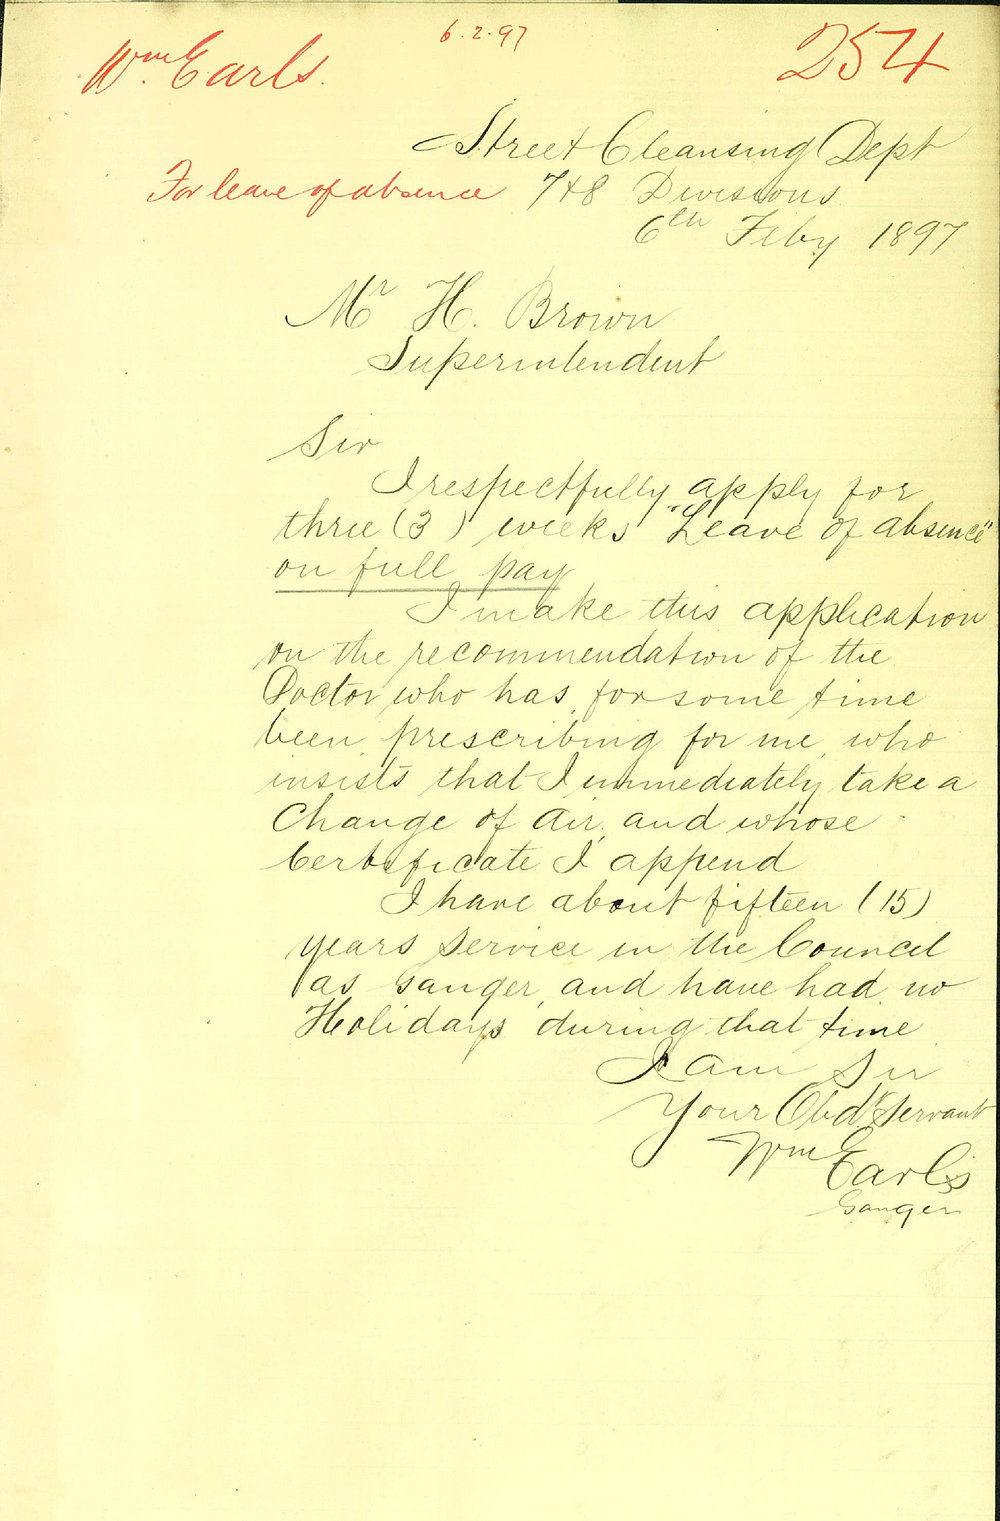 6.2.97
Wm. Earls.
254
Street Cleansing Dept
For leave of absence
7 & 8 Divisions
6th Feby 1897
Mr H. Brown
Superintendent
Sir
I respectfully apply for
three (3) weeks "Leave of absence"
on full pay
I make this application
on the recommendation of the
Doctor who has for some time
been prescribing for me, who
insists that I immediately take a
Change of Air, and whose
Certificate I append
I have about fifteen (15)
years service in the Council
as Ganger, and have had no
Holidays during that time
I am Sir
Your Obdt Servant
Wm Earls
Ganger